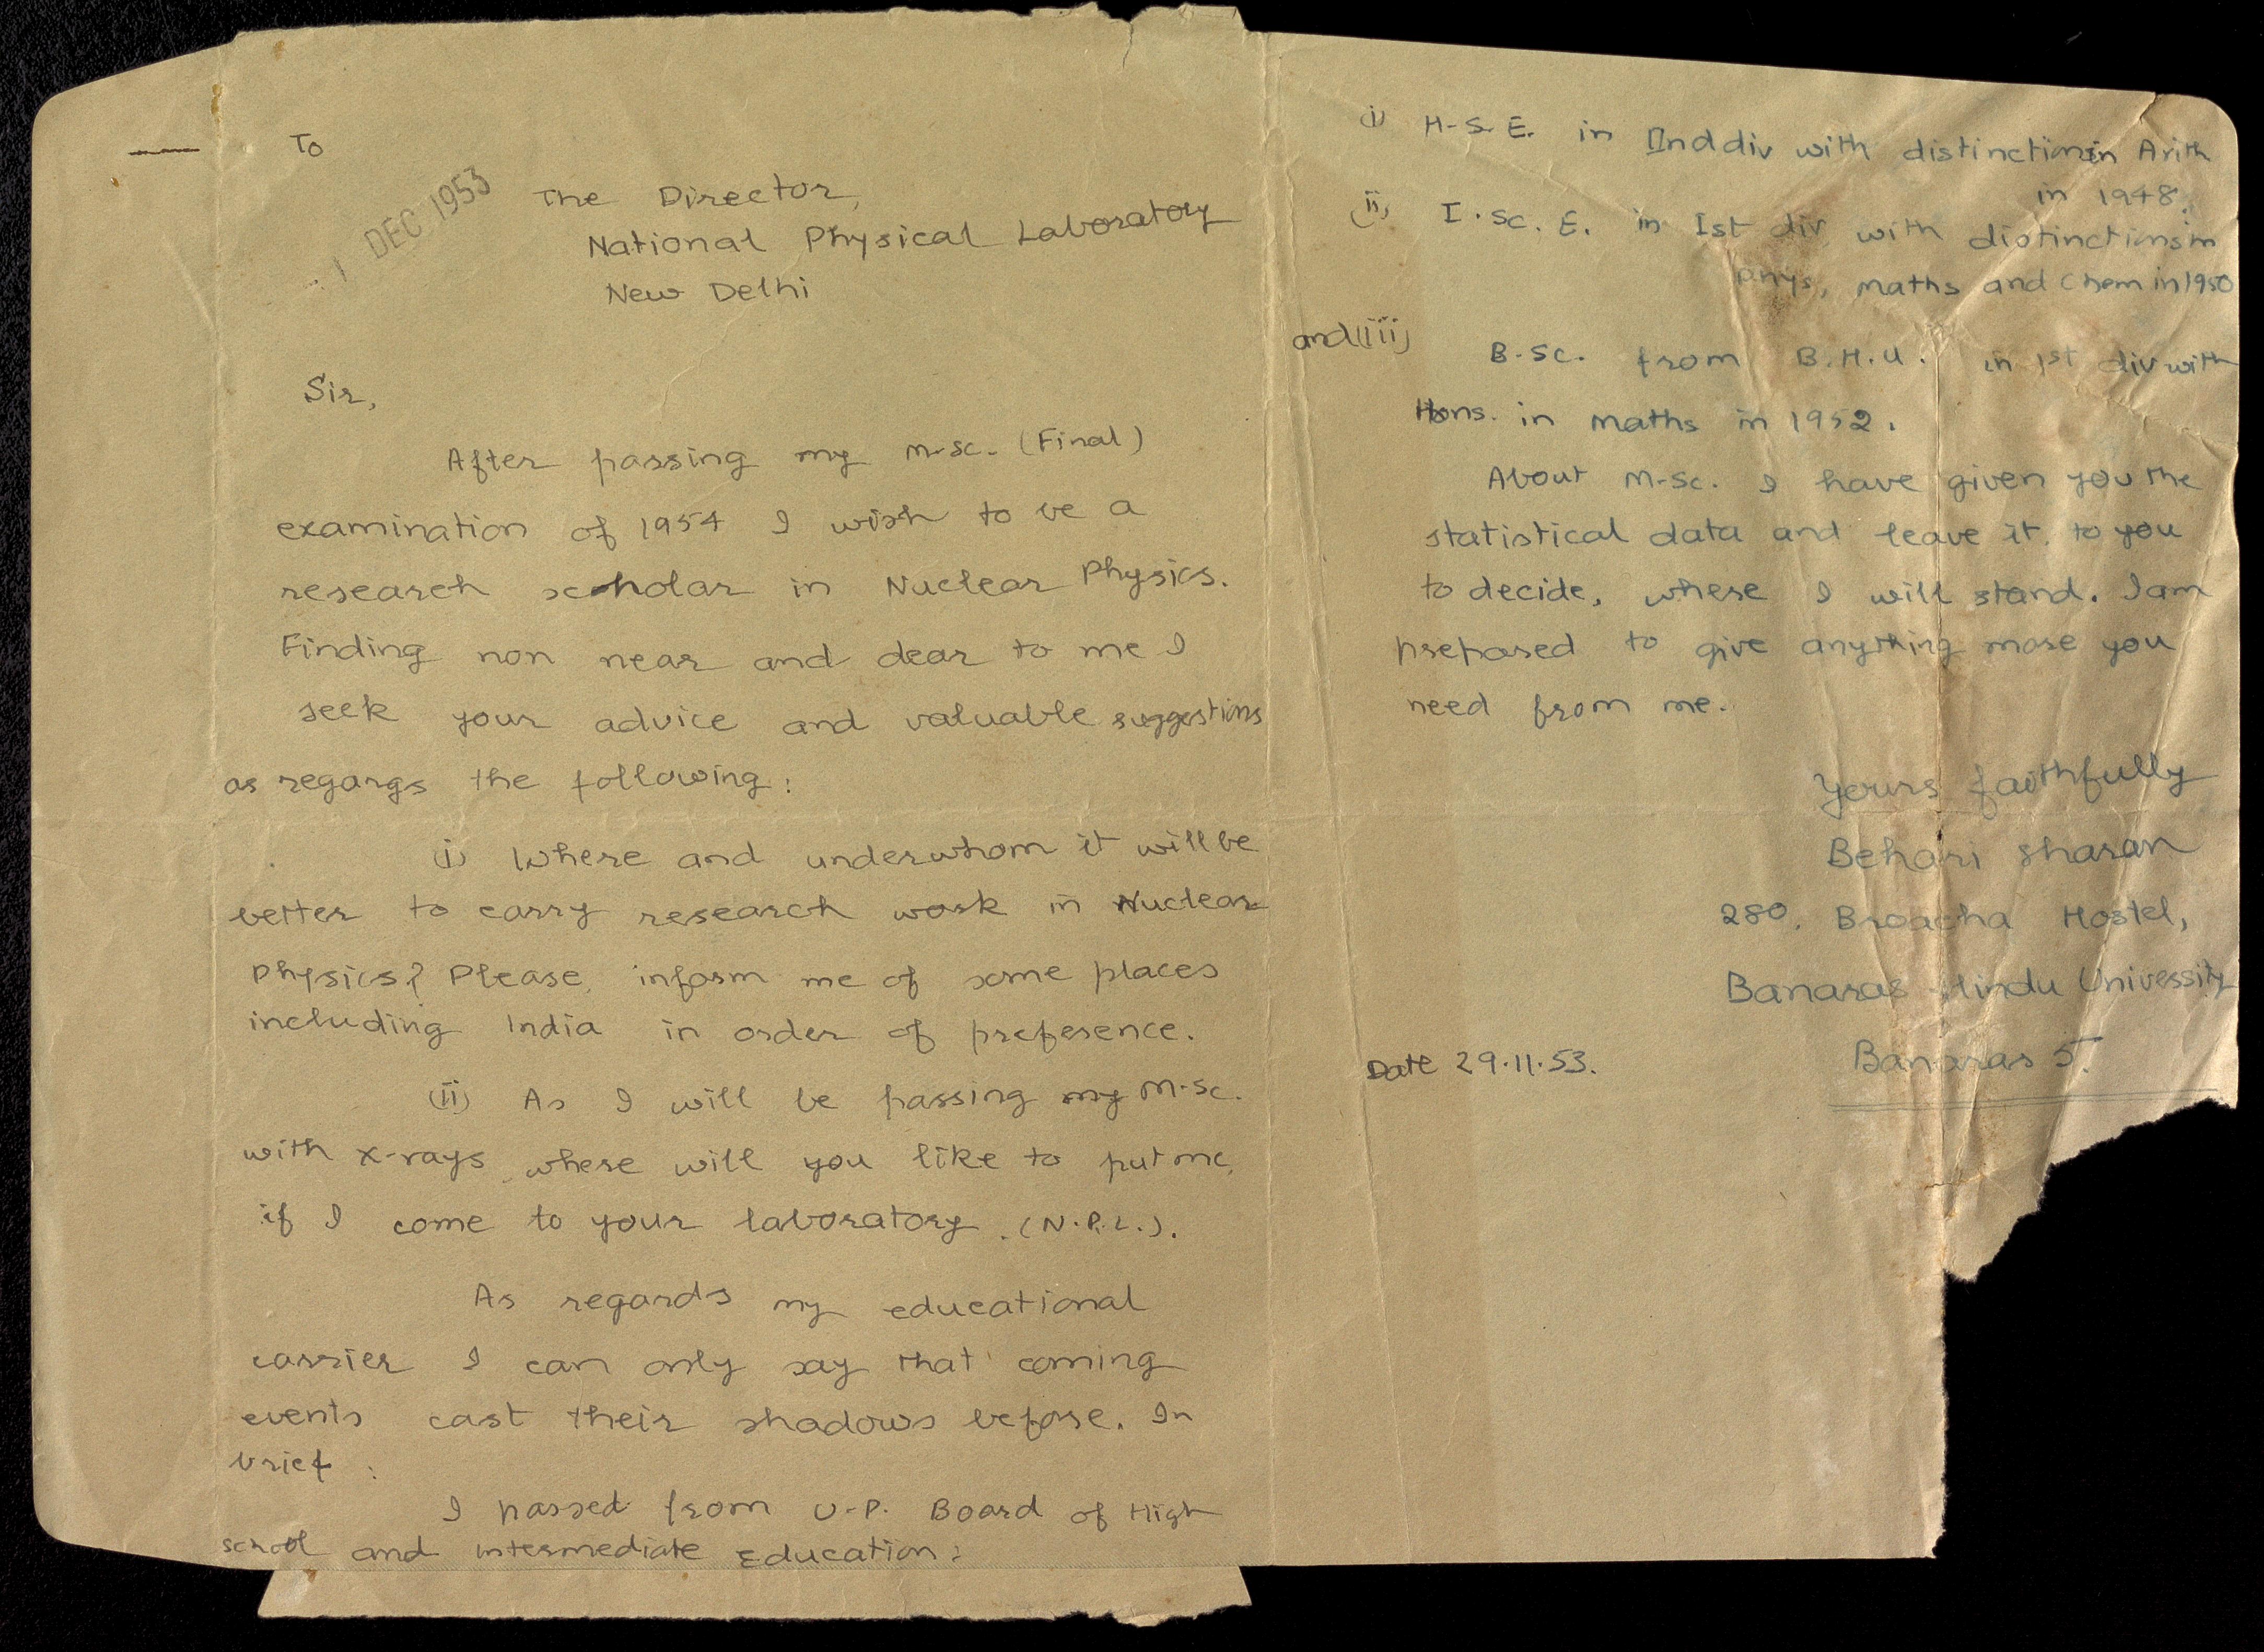 To
1 DEC 1953
The Director,
National Physical Laboratory
New Delhi
Sir,
After passing my M.Sc. (Final)
examination of 1954 I wish to be a
research scholar in Nuclear Physics.
Finding non near and dear to me I
seek your advice and valuable suggestions
as regargs the following:
(i) Where and underwhom it will be
better to carry research work in Nuclear
Physics? Please, inform me of some places
including India in order of preference.
(ii) As I will be passing my M.Sc.
with x-rays, where will you like to put me,
if I come to your laboratory. (N.P.L.).
As regards my educational
carrier I can only say that coming
events cast their shadows before. In
brief:
I passed from U.P. Board of High
school and intermediate Education:
(i) H.S.E. in IInd div with distinction in Arith
in 1948.
(ii) I.Sc.E. in Ist div with distinctions in
Phys, Maths and Chem in 1950
and (iii) B.Sc. from B.H.U. in 1st div with
Hons. in maths in 1952.
About M.Sc. I have given you the
statistical data and leave it, to you
to decide, where I will stand. I am
prepared to give anything more you
need from me.
Yours faithfully
Behari Sharan
280, Broacha Hostel,
Banaras Hindu University
Banaras 5.
Date 29.11.53.